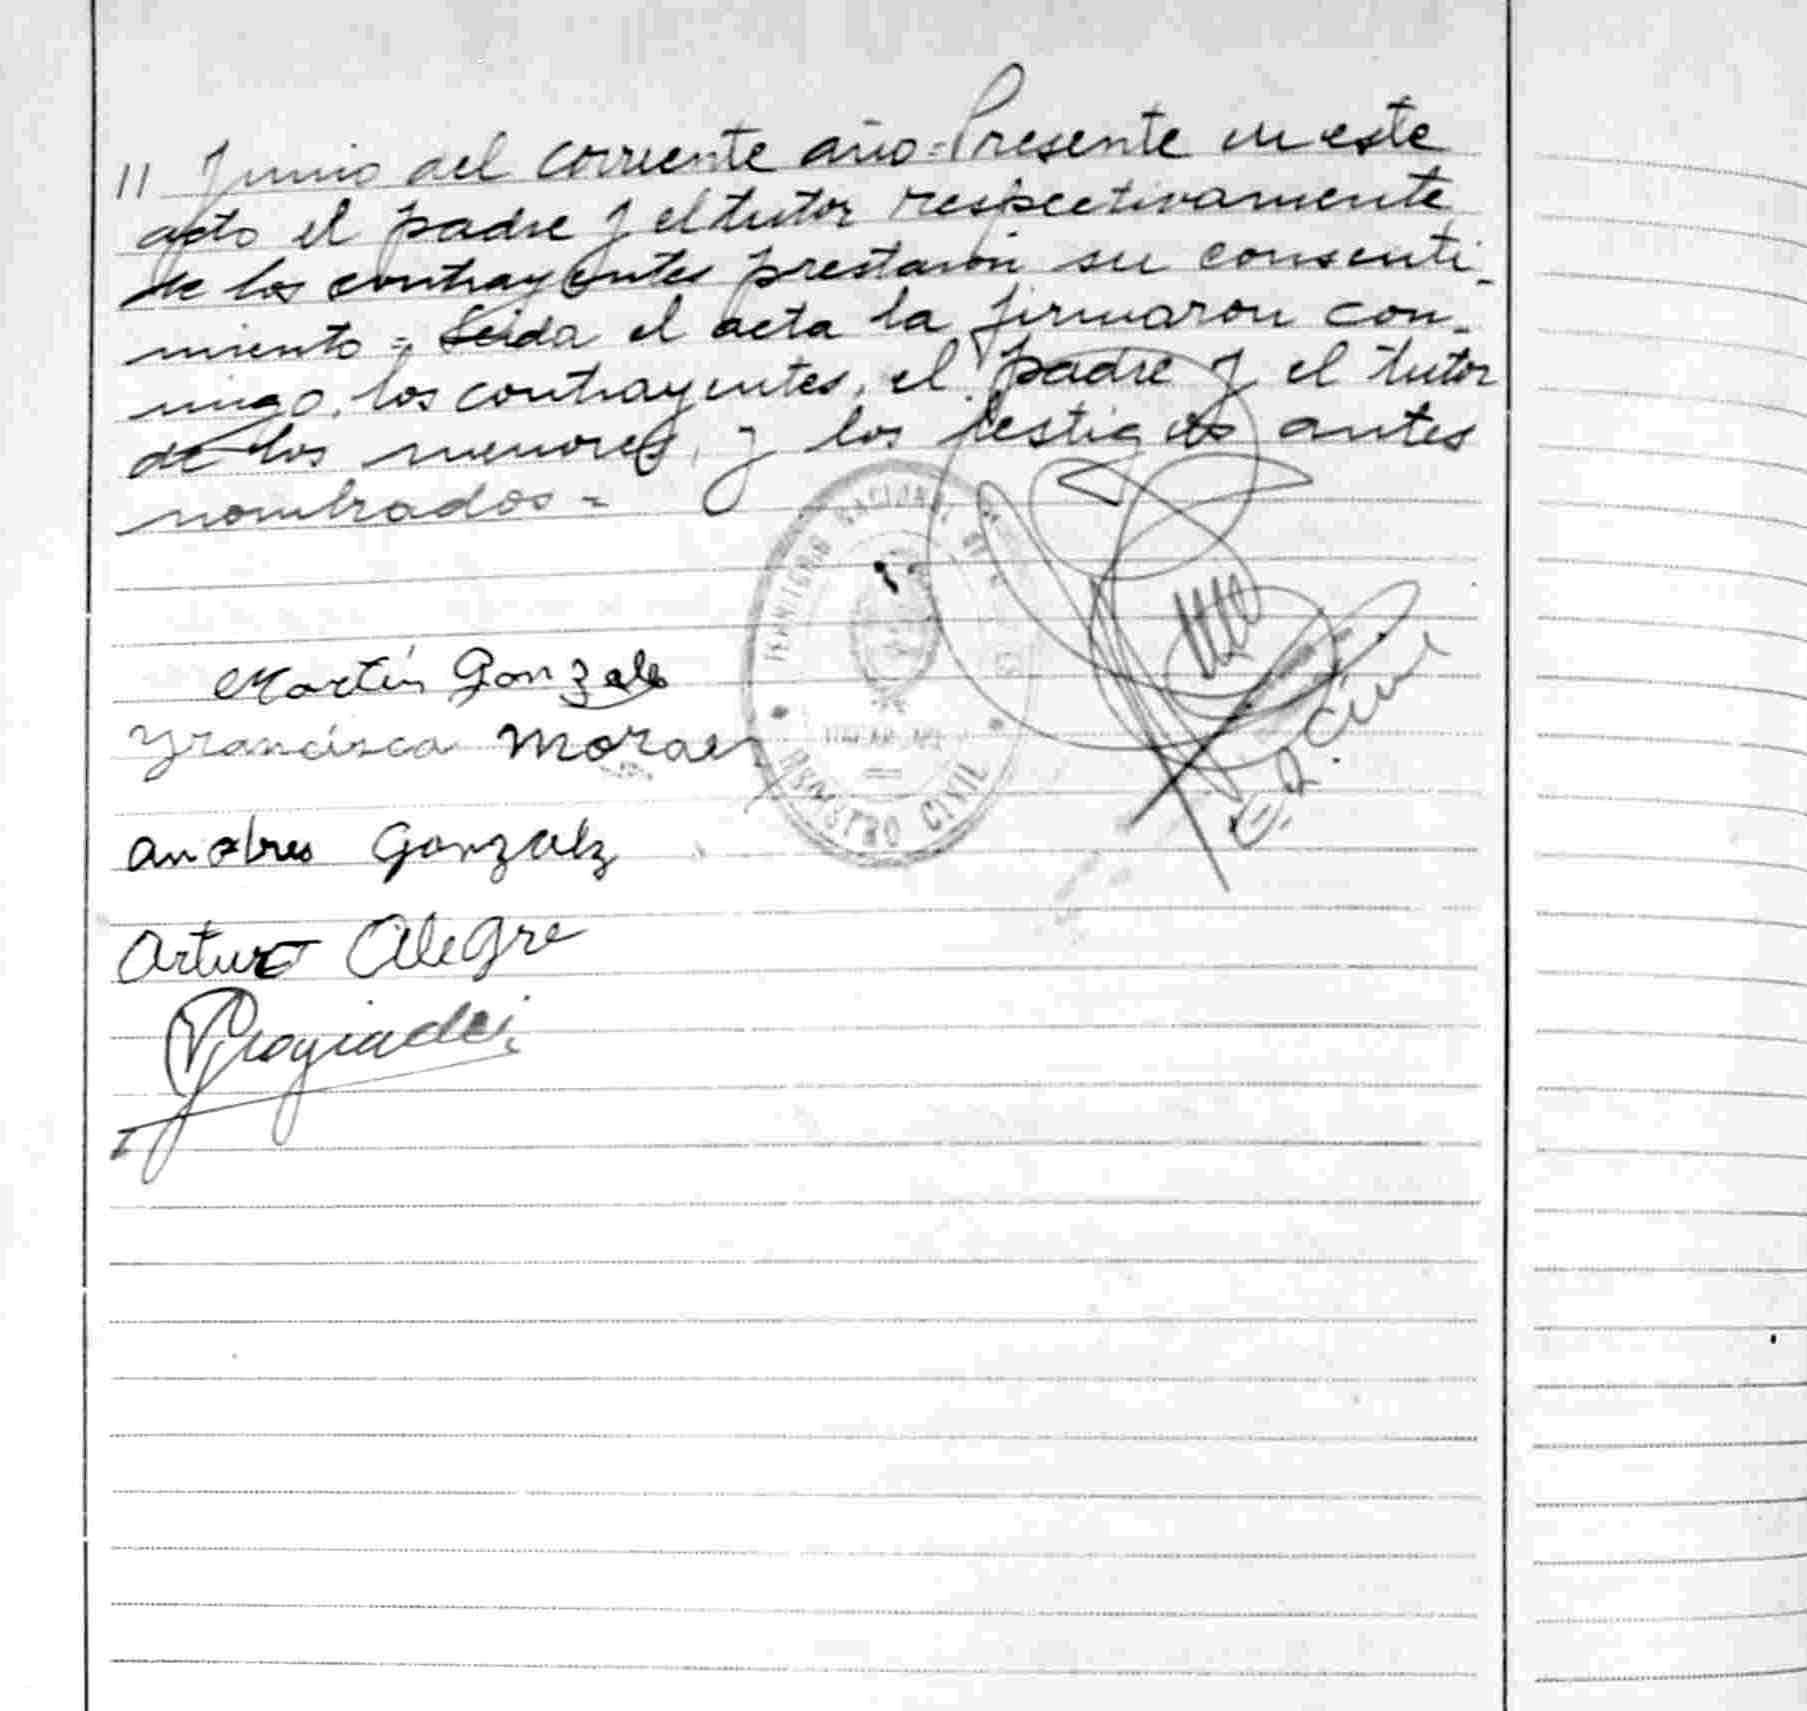 11 Junio del corriente año = Presente en este
acto el padre y el tutor respectivamente
de los contrayentes prestaron su consenti-
miento = Leida el acta la firmaron con-
migo, los contrayentes, el padre y el tutor
de los menores, y los testigos antes
nombrados =
TERRITORIO NACIONAL
REGISTRO CIVIL
Martín Gonzalez
Francisca Moraez
Andres Gonzalez
Arturo Alegre